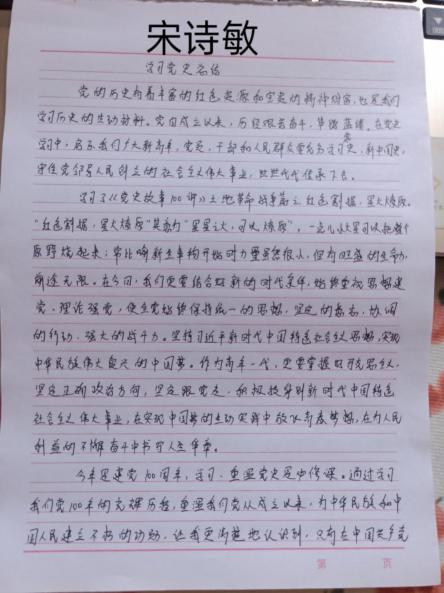 宋诗敏
学习党史总结
党的历史有着丰富的红色资源和宝贵的精神财富,也是我们
学习历史的生动材料。党自成立以来,历经艰苦奋斗,筚路蓝缕。在党史
学习中,启示我们广大新青年,党员,干部和人民群众要学习党史,新中国史,
守住党领导人民创立的社会主义伟大事业,世世代代传承下去。
学习了《党史故事100讲》土地革命战争篇之红色割据,星火燎原。
"红色割据,星火燎原"其意为"星星之火,可以燎原",一点儿小火星可以把整个
原野烧起来;常比喻新生事物开始时力量虽然很小,但有旺盛的生命力,
前途无限。在今日,我们更要结合新的时代条件,始终重视思想建
党、理论强党,使全党始终保持统一的思想,坚定的意志,协调
的行动,强大的战斗力。坚持习近平新时代中国特色社会主义思想,实现
中华民族伟大复兴的中国梦。作为青年一代,更要掌握好马克思主义,
坚定正确政治方向,坚定跟党走,积极投身到新时代中国特色
社会主义伟大事业,在实现中国梦的生动实践中放飞青春梦想,在为人民
利益的不懈奋斗中书写人生华章。
今年是建党100周年,学习、重温党史是必修课。通过学习
我们党100年的光辉历程,重温我们党从成立以来,为中华民族和中
国人民建立不朽的功勋,让我更清楚地认识到,只有在中国共产党
第 页